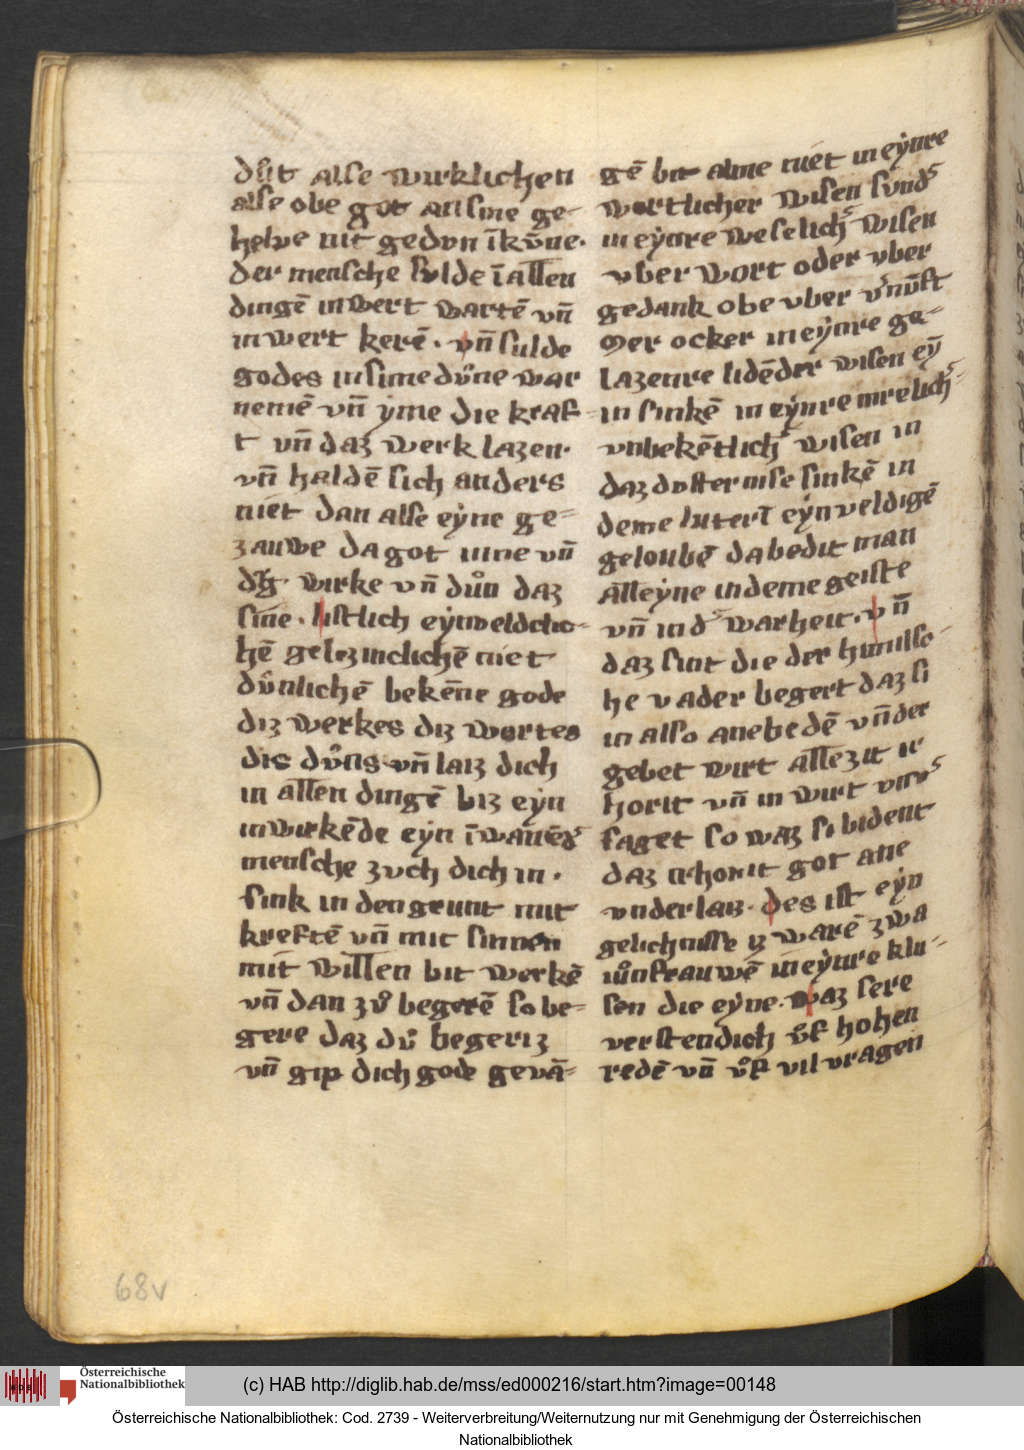 duͦt alse wirklichen
alse obe got an sine ge-
helpe nit gedvn īkv̄ne.
der mensche solde ī allen
dingē inwert wartē vn̄
inwert kerē. vn̄ sulde
godes in sime dv̊ne war
nemē vn̄ yme die kraf-
t vn̄ daz werk lazen.
vn̄ haldē sich anders
niet dan alse eyne ge-
zauwe da got inne vn̄
wirke vn̄ dun daz
sine. listlich
hē niet
dv̊nlichē bekēne gode
diz werkes diz wortes
dis dv̊ns vn̄ laiz dich
in allen dingē biz eyn
inwirkēde eyn
mensche zvch dich in.
sink in den grunt mit
kreftē vn̄ mit sinnen
mit willen bit werkē
vn̄ dan zv̊ begerē so be-
gere daz dv̊ begeriz
vn̄ gip dich gode gevā-
gē bit alme niet in eynre
wortlicher wisen svnd'
in eynre weselich' wisen
vber wort oder vber
gedank obe vber v'nv̄ft
Mer ocker in eynre ge-
lazenre lidēder wisen ey̅
in sinkē in eynre inrelich'
vnbekētlich' wisen in
daz dvsternisse sinkē in
deme eynveldigē
geloubē da bedit man
alleyne in deme geiste
vn̄ in d' warheit. vn̄
daz sint die der himilsc-
he vader begert daz si
in also anebedē vn̄ der
gebet wirt alle zit ir
horit vn̄ in wirt
saget so waz si bident
daz irhorit got ane
vnderlaiz. des ist eyn
gelichnisse iz warē zwa
iuͦnfrauwē in eynre klu-
sen die eyne. waz sere
verstendich v̊f hohen
redē vn̄ v̊f vil vragen
68v
Österreichische
Nationalbibliothek
(c) HAB http://diglib.hab.de/mss/ed000216/start.htm?image=00148
Österreichische Nationalbibliothek: Cod. 2739 - Weiterverbreitung/Weiternutzung nur mit Genehmigung der Österreichischen
Nationalbibliothek